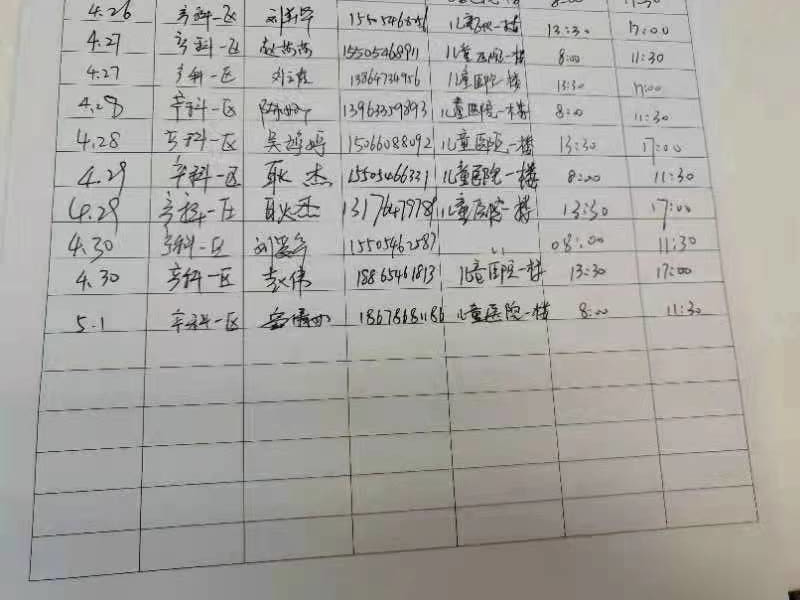 4.26 产科一区 儿童医院一楼 13:30 17:00
4.27 产科一区 15505468911 儿童医院一楼 8:00 11:30
4.27 产科一区 13864734956 儿童医院一楼 13:30 17:00
4.28 产科一区 13963359893 儿童医院一楼 8:00 11:30
4.28 产科一区 吴婷婷 15066088092 儿童医院一楼 13:30 17:00
4.29 产科一区 耿杰 15505466331 儿童医院一楼 8:00 11:30
4.29 产科一区 耿杰 儿童医院一楼 13:30 17:00
4.30 产科一区 15505462587 〃 08:00 11:30
4.30 产科一区 18865461813 儿童医院一楼 13:30 17:00
5.1 产科一区 18678681186 儿童医院一楼 8:00 11:30